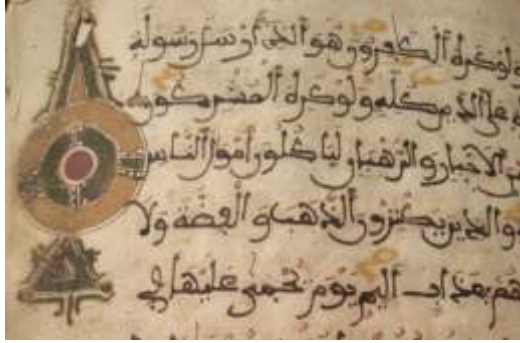 ولوكره الكفرون هو الذى أرسل رسوله
على الدين كله ولوكره المشركون
الاحبار والرهبان لياكلون أموال الناس
والذين يكنزون الذهب والفضة ولا
هم بعذاب اليم يوم يحمى عليها في